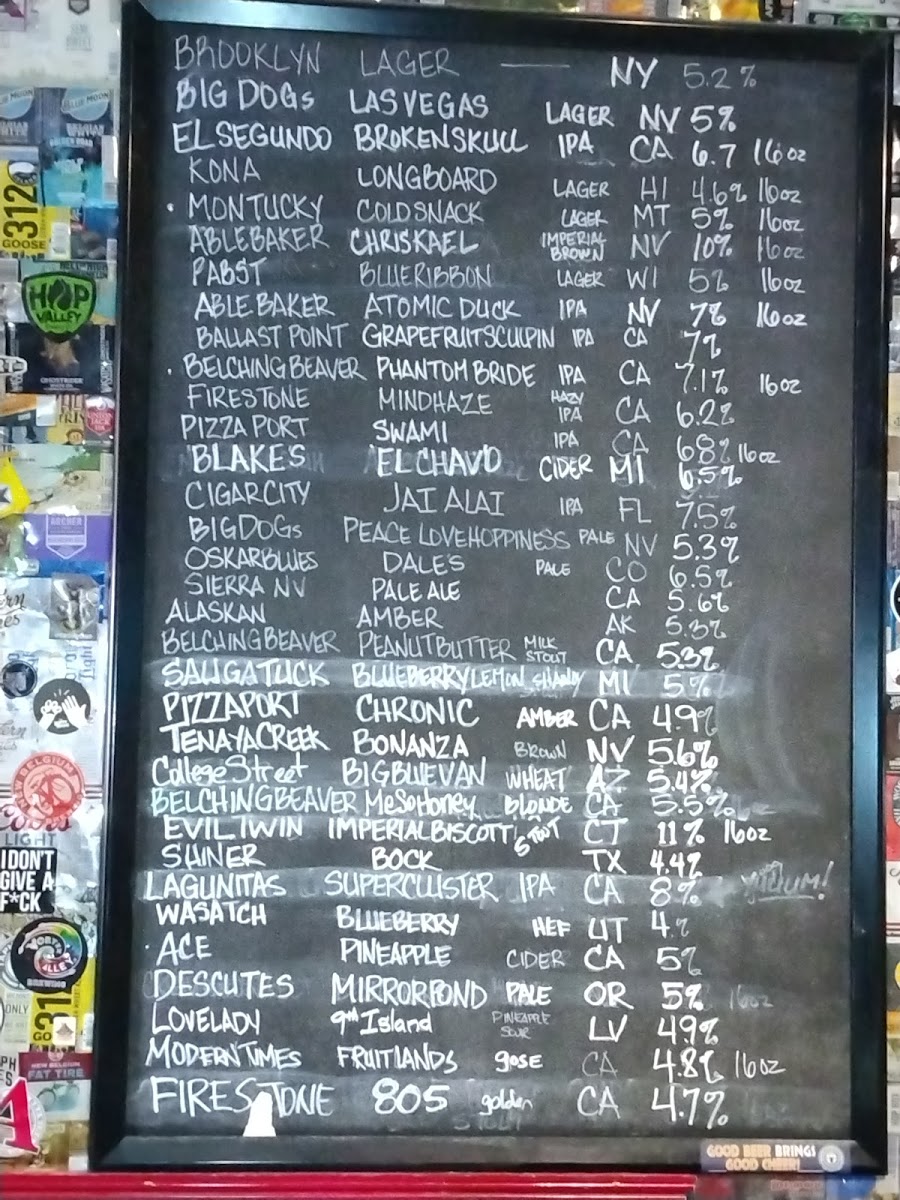 BROOKLYN LAGER — NY 5.2%
BIG DOGS LAS VEGAS LAGER NV 5%
EL SEGUNDO BROKEN SKULL IPA CA 6.7 16oz
KONA LONGBOARD LAGER HI 4.6% 16oz
MONTUCKY COLD SNACK LAGER MT 5% 16oz
ABLE BAKER CHRIS KAEL IMPERIAL BROWN NV 10% 16oz
PABST BLUE RIBBON LAGER WI 5% 16oz
ABLE BAKER ATOMIC DUCK IPA NV 7% 16oz
BALLAST POINT GRAPEFRUIT SCULPIN IPA CA 7%
BELCHING BEAVER PHANTOM BRIDE IPA CA 7.1% 16oz
FIRESTONE MINDHAZE HAZY IPA CA 6.2%
PIZZA PORT SWAMI IPA CA 6.8% 16oz
BLAKES EL CHAVO CIDER MI 6.5%
CIGAR CITY JAI ALAI IPA FL 7.5%
BIG DOGS PEACE LOVE HOPPINESS PALE NV 5.3%
OSKAR BLUES DALE'S PALE CO 6.5%
SIERRA NV PALE ALE CA 5.6%
ALASKAN AMBER AK 5.3%
BELCHING BEAVER PEANUT BUTTER MILK STOUT CA 5.3%
SAUGATUCK BLUEBERRY LEMON SHANDY MI 5%
PIZZA PORT CHRONIC AMBER CA 4.9%
TENAYA CREEK BONANZA BROWN NV 5.6%
College Street BIG BLUE VAN WHEAT AZ 5.4%
BELCHING BEAVER Me So Honey BLONDE CA 5.5%
EVIL TWIN IMPERIAL BISCOTTI STOUT CT 11% 16oz
SHINER BOCK TX 4.4%
LAGUNITAS SUPERCLUSTER IPA CA 8% YUUUM!
WASATCH BLUEBERRY HEF UT 4.%
ACE PINEAPPLE CIDER CA 5%
DESCUTES MIRROR POND PALE OR 5% 16oz
LOVELADY 9th Island PINEAPPLE SOUR LV 4.9%
MODERN TIMES FRUITLANDS gose CA 4.8% 16oz
FIRESTONE 805 golden CA 4.7%
GOOD BEER BRINGS
GOOD CHEER!
BLUE MOON
312
GOOSE
HOP
VALLEY
ARCHER
NEW BELGIUM
LIGHT
I DON'T
GIVE A
F*CK
NEW BELGIUM
FAT TIRE